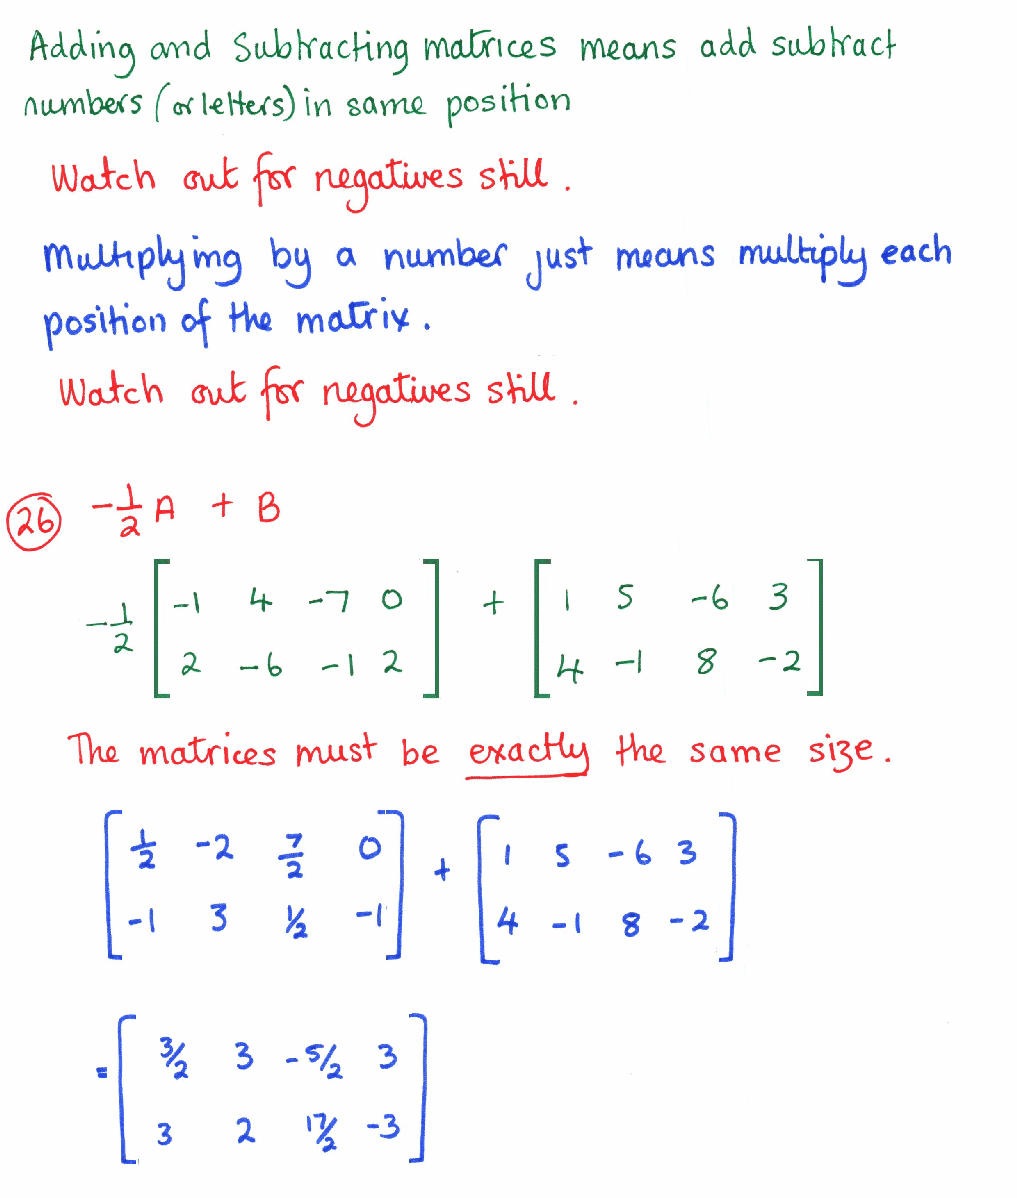 Adding and Subtracting matrices means add subtract
numbers (or letters) in same position
Watch out for negatives still.
Multiplying by a number just means multiply each
position of the matrix.
Watch out for negatives still.
26 -1/2 A + B
-1/2 [ -1 4 -7 0 ] + [ 1 5 -6 3 ]
[ 2 -6 -1 2 ] [ 4 -1 8 -2 ]
The matrices must be exactly the same size.
[ 1/2 -2 7/2 0 ] + [ 1 5 -6 3 ]
[ -1 3 1/2 -1 ] [ 4 -1 8 -2 ]
= [ 3/2 3 -5/2 3 ]
[ 3 2 17/2 -3 ]